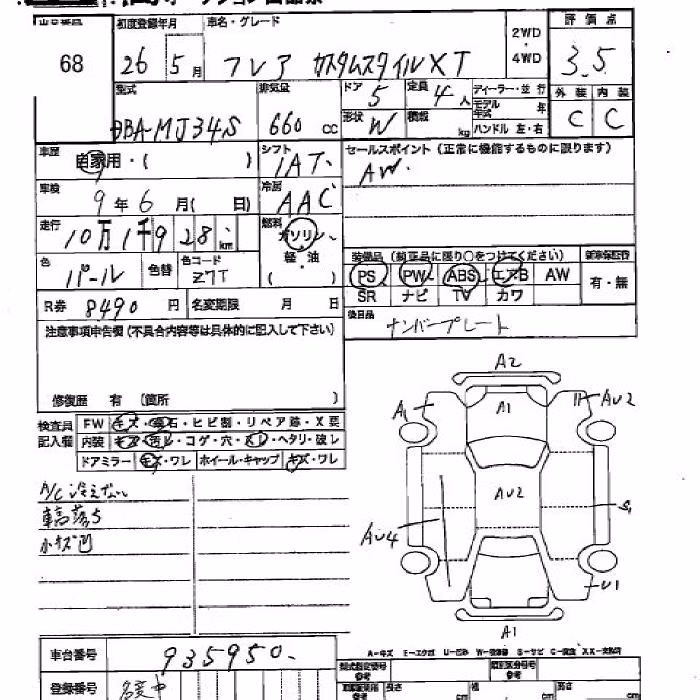 68
初度登録年月 車名・グレード 2WD・4WD 評価点
26 5月 フレア カスタムスタイルXT 3.5
型式 排気量 ドア 5 定員 4人 ディーラー・並行 外装 内装
DBA-MJ34S 660 CC 形状 W 積載 kg モデル年式 年 ハンドル 左・右 C C
車歴 自家用・( ) シフト IAT セールスポイント (正常に機能するものに限ります)
車検 9年6月( 日) 冷房 AAC AW.
走行 10万1千928 km 燃料 ガソリン・軽・油 ( )
装備品 (純正品に限り○をつけてください) 新車保証書
色 パール 色替 色コード Z7T PS PW ABS エアB AW 有・無
SR ナビ TV カワ
R券 8490円 名変期限 月 日 後日品 ナンバープレート
注意事項申告欄 (不具合内容等は具体的に記入して下さい)
修復歴 有 (箇所 )
検査員記入欄 FW キズ・飛石・ヒビ割・リペア跡・X要
内装 キズ・汚レ・コゲ・穴・スレ・ヘタリ・破レ
ドアミラー キズ・ワレ ホイール・キャップ キズ・ワレ
A/C冷えない
車高落ち
小キズ凹
A2
A1 A1 AU2
AU2
S1
AU4
U1
A1
車台番号 935950
A-キズ E-エクボ U-凹み W-波修正 S-サビ C-腐食 XX-交換済
登録番号 名変中
型式指定番号 参考 類別区分番号 参考
長さ cm 幅 cm 高さ cm